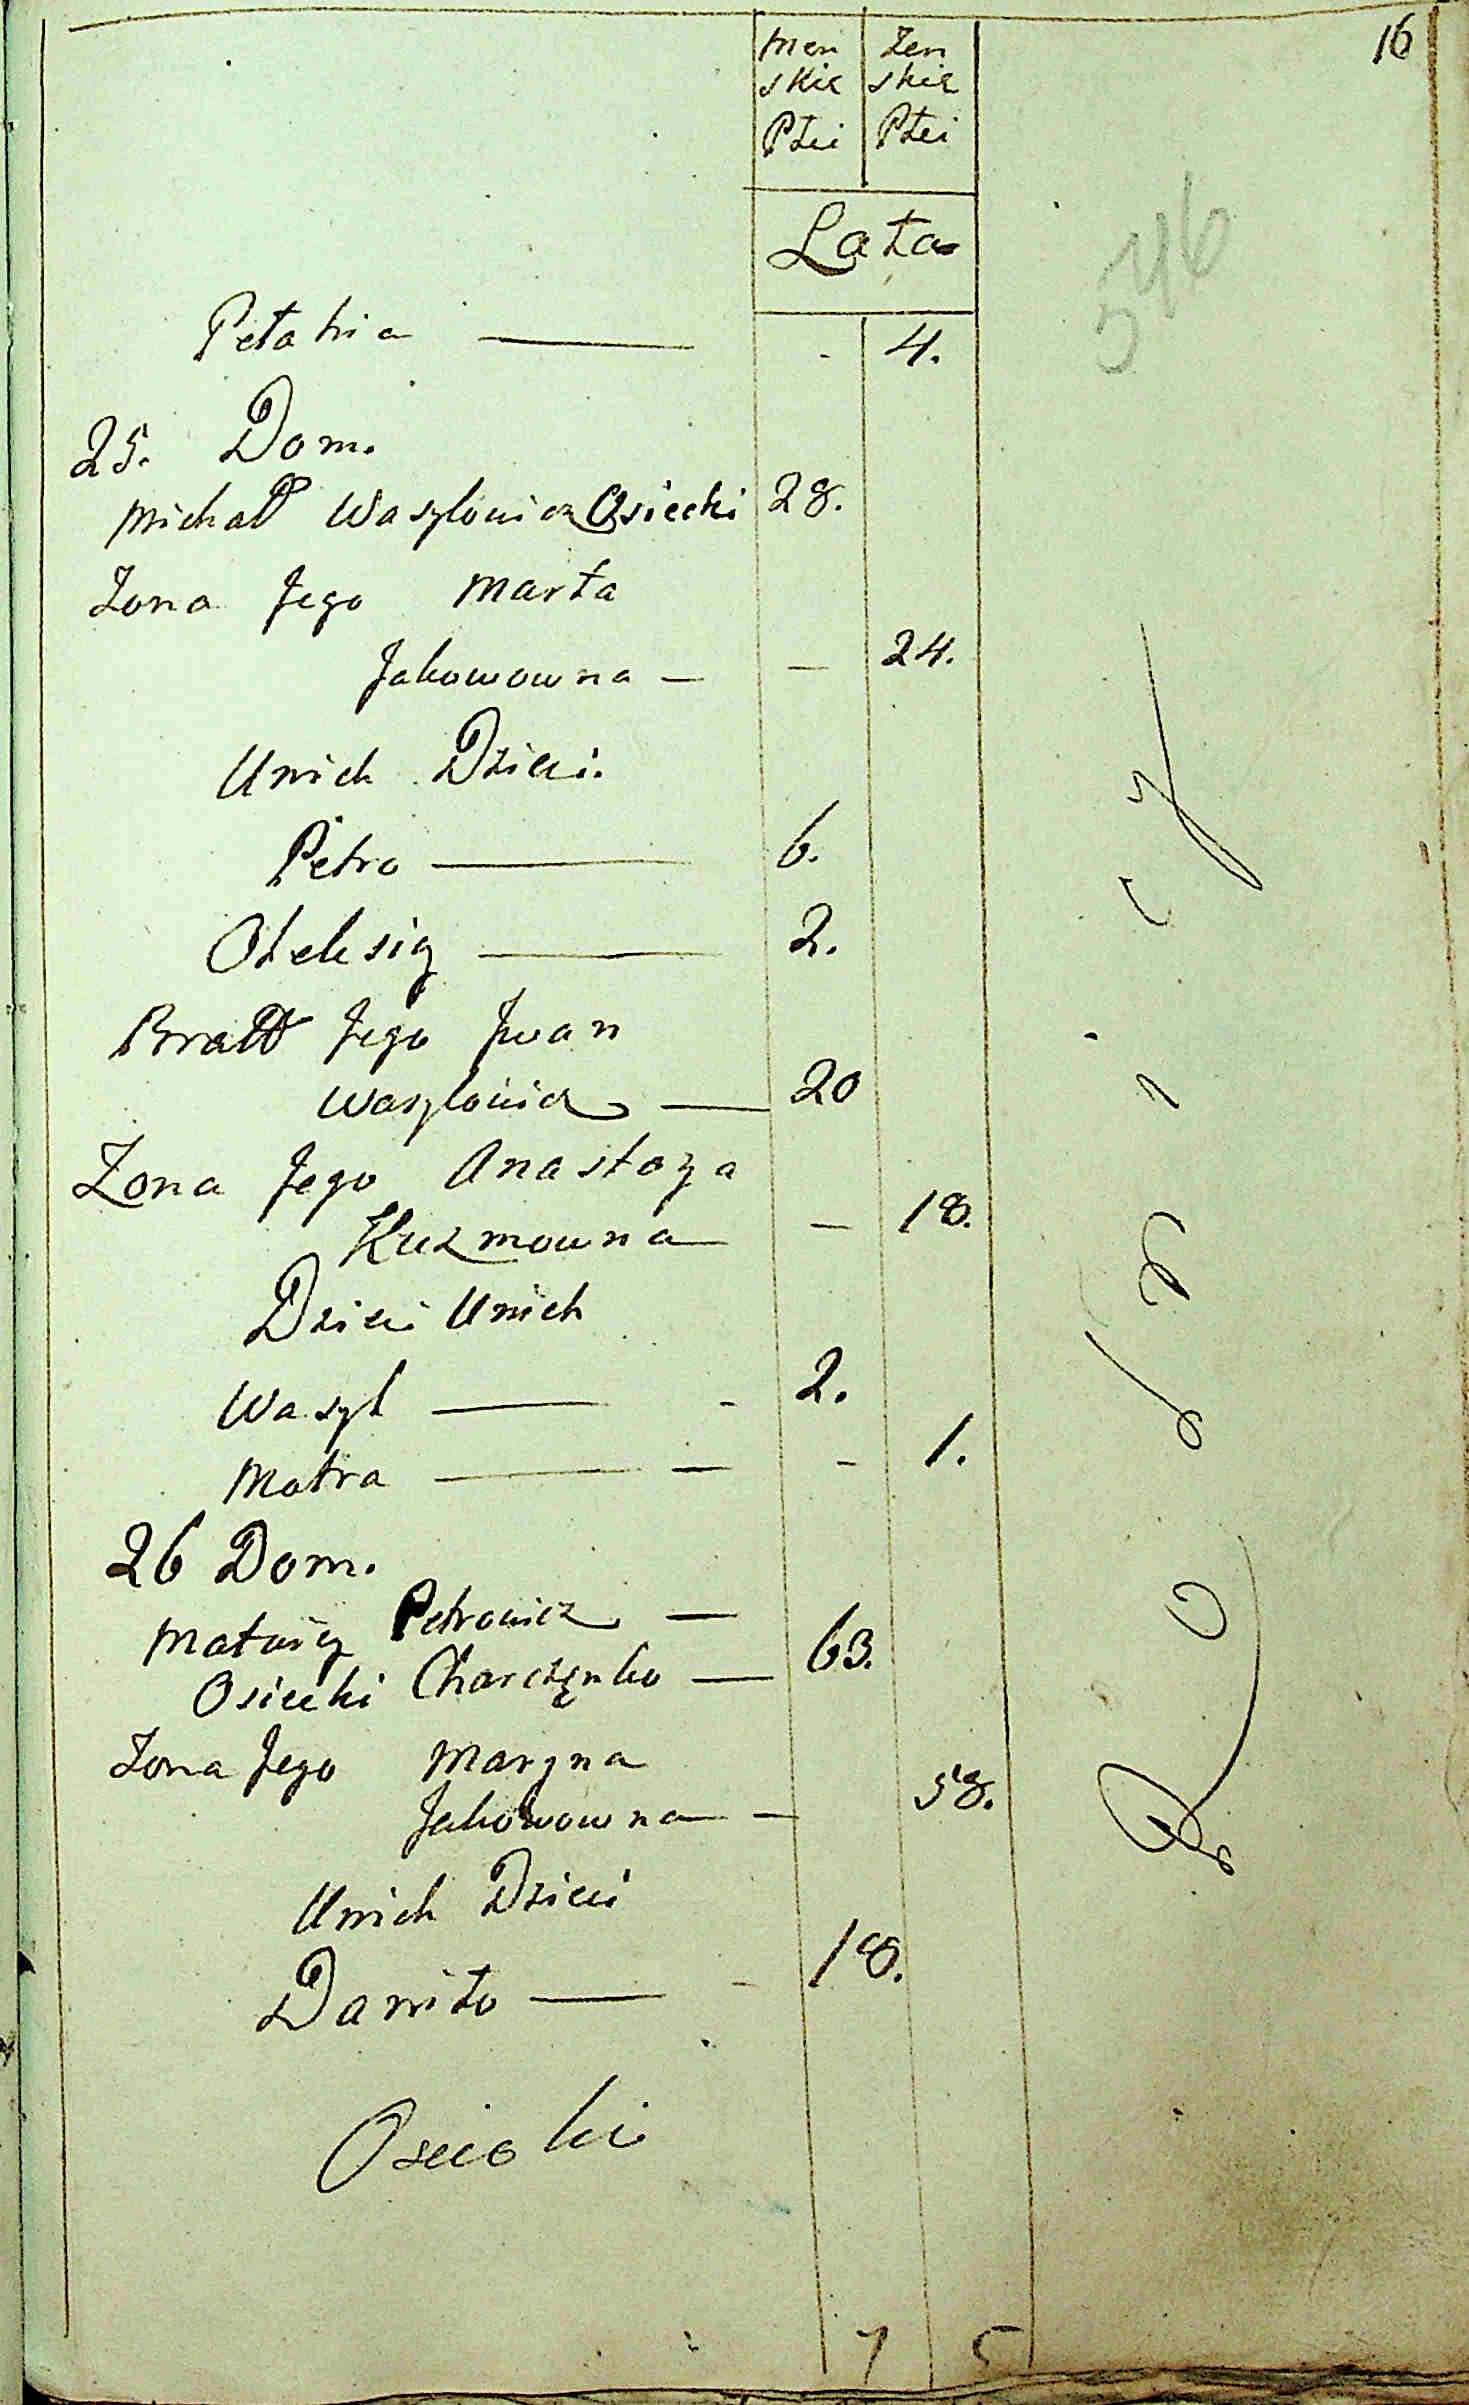 16
Men Zen
skie skie
Płci Płci
Lata
546
Petahia — - 4.
25. Dom.
Michałł Wasylowicz Osiecki 28.
Zona Jego Marta
Jakowowna — — 24.
Unich Dzieci.
Petro — 6.
Oleksiy — 2.
Bratt Jego Jwan
Wasylowicz — 20
Zona Jego Anastazya
Kuzmowna — 18.
Dzieci Unich
Wasyl — - 2.
Motra — — - 1.
26 Dom.
Matwiy Petrowicz —
Osiecki Charczęnko — 63.
Zona Jego Maryna
Jakowowna — 58.
Unich Dzieci
Daniło — - 18.
Osiecki
7 5